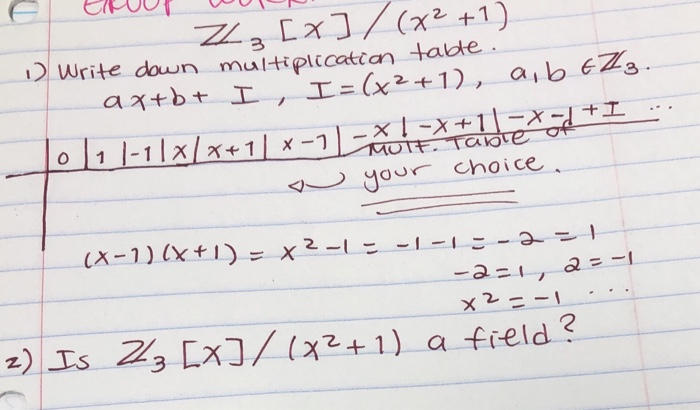 ℤ₃[x]/(x²+1)
1) Write down multiplication table.
ax+b+ I , I=(x²+1), a,b ∈ℤ₃.
0|1|-1|x|x+1|x-1|-x|-x+1|-x-1+I ...
Mult. Table of
your choice.
(x-1)(x+1) = x²-1 = -1-1 = -2 = 1
-2=1, 2=-1
x²=-1 ...
2) Is ℤ₃[x]/(x²+1) a field?